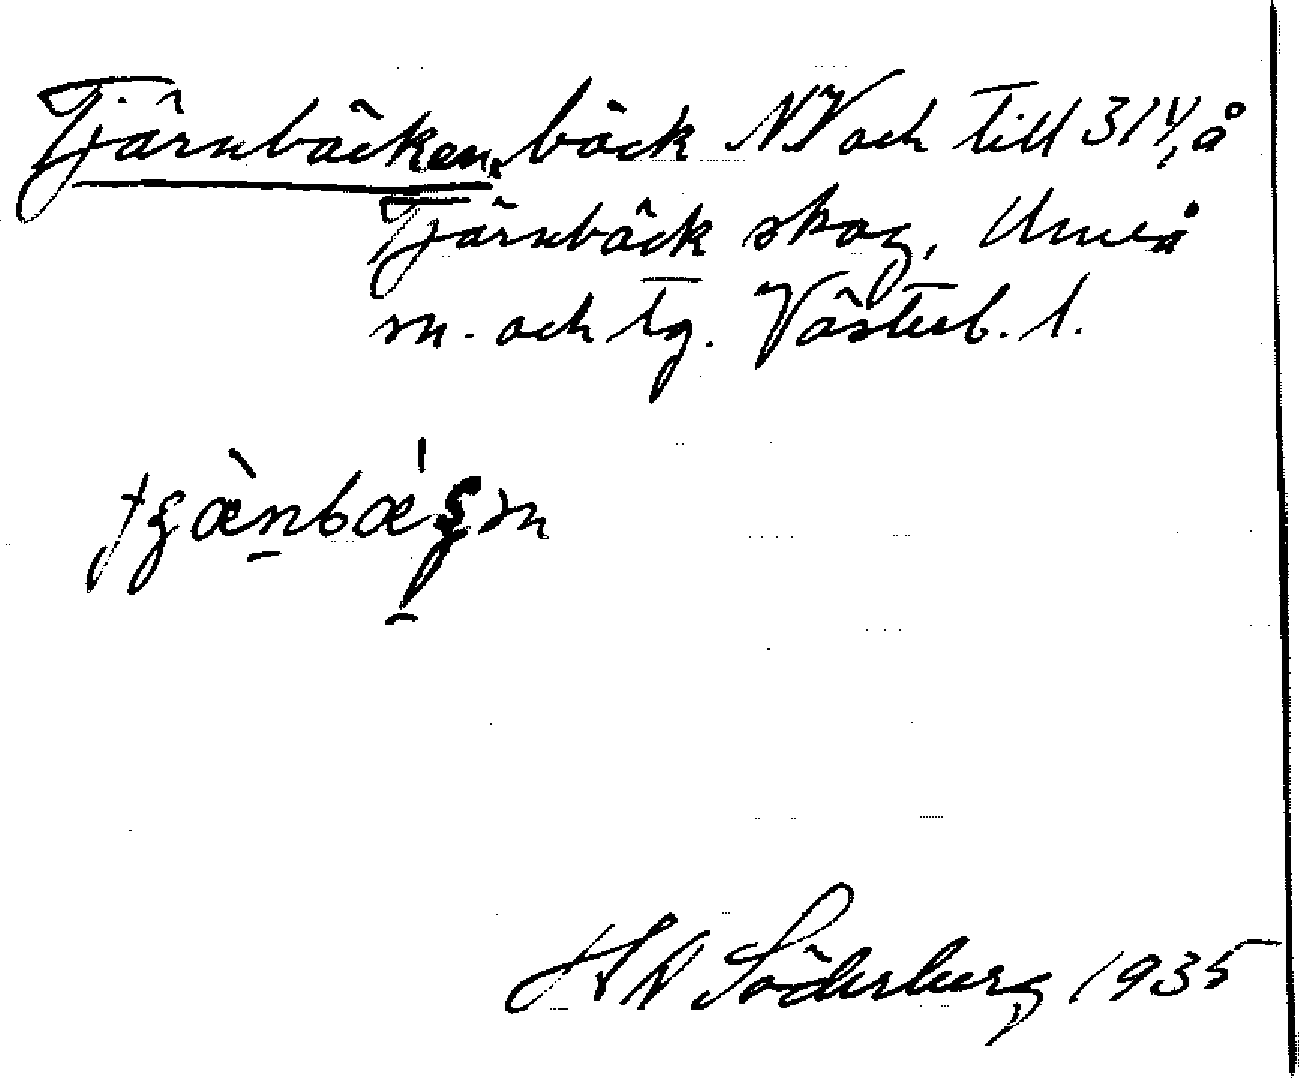 Tjärnbäcken, bäck NV och till 314, å
Tjärnbäck skog, Umeå
sn. och tg. Västerb. l.
H N Söderberg 1935